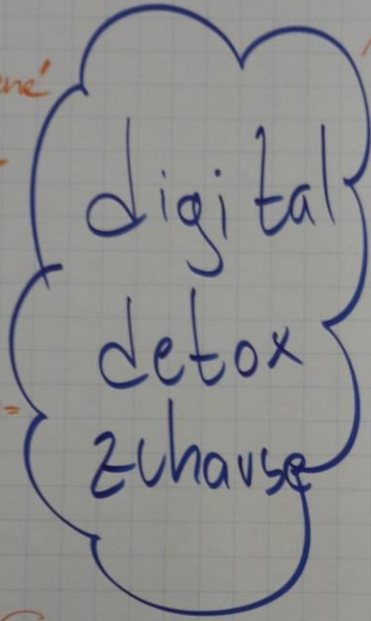 digital
detox
zuhause